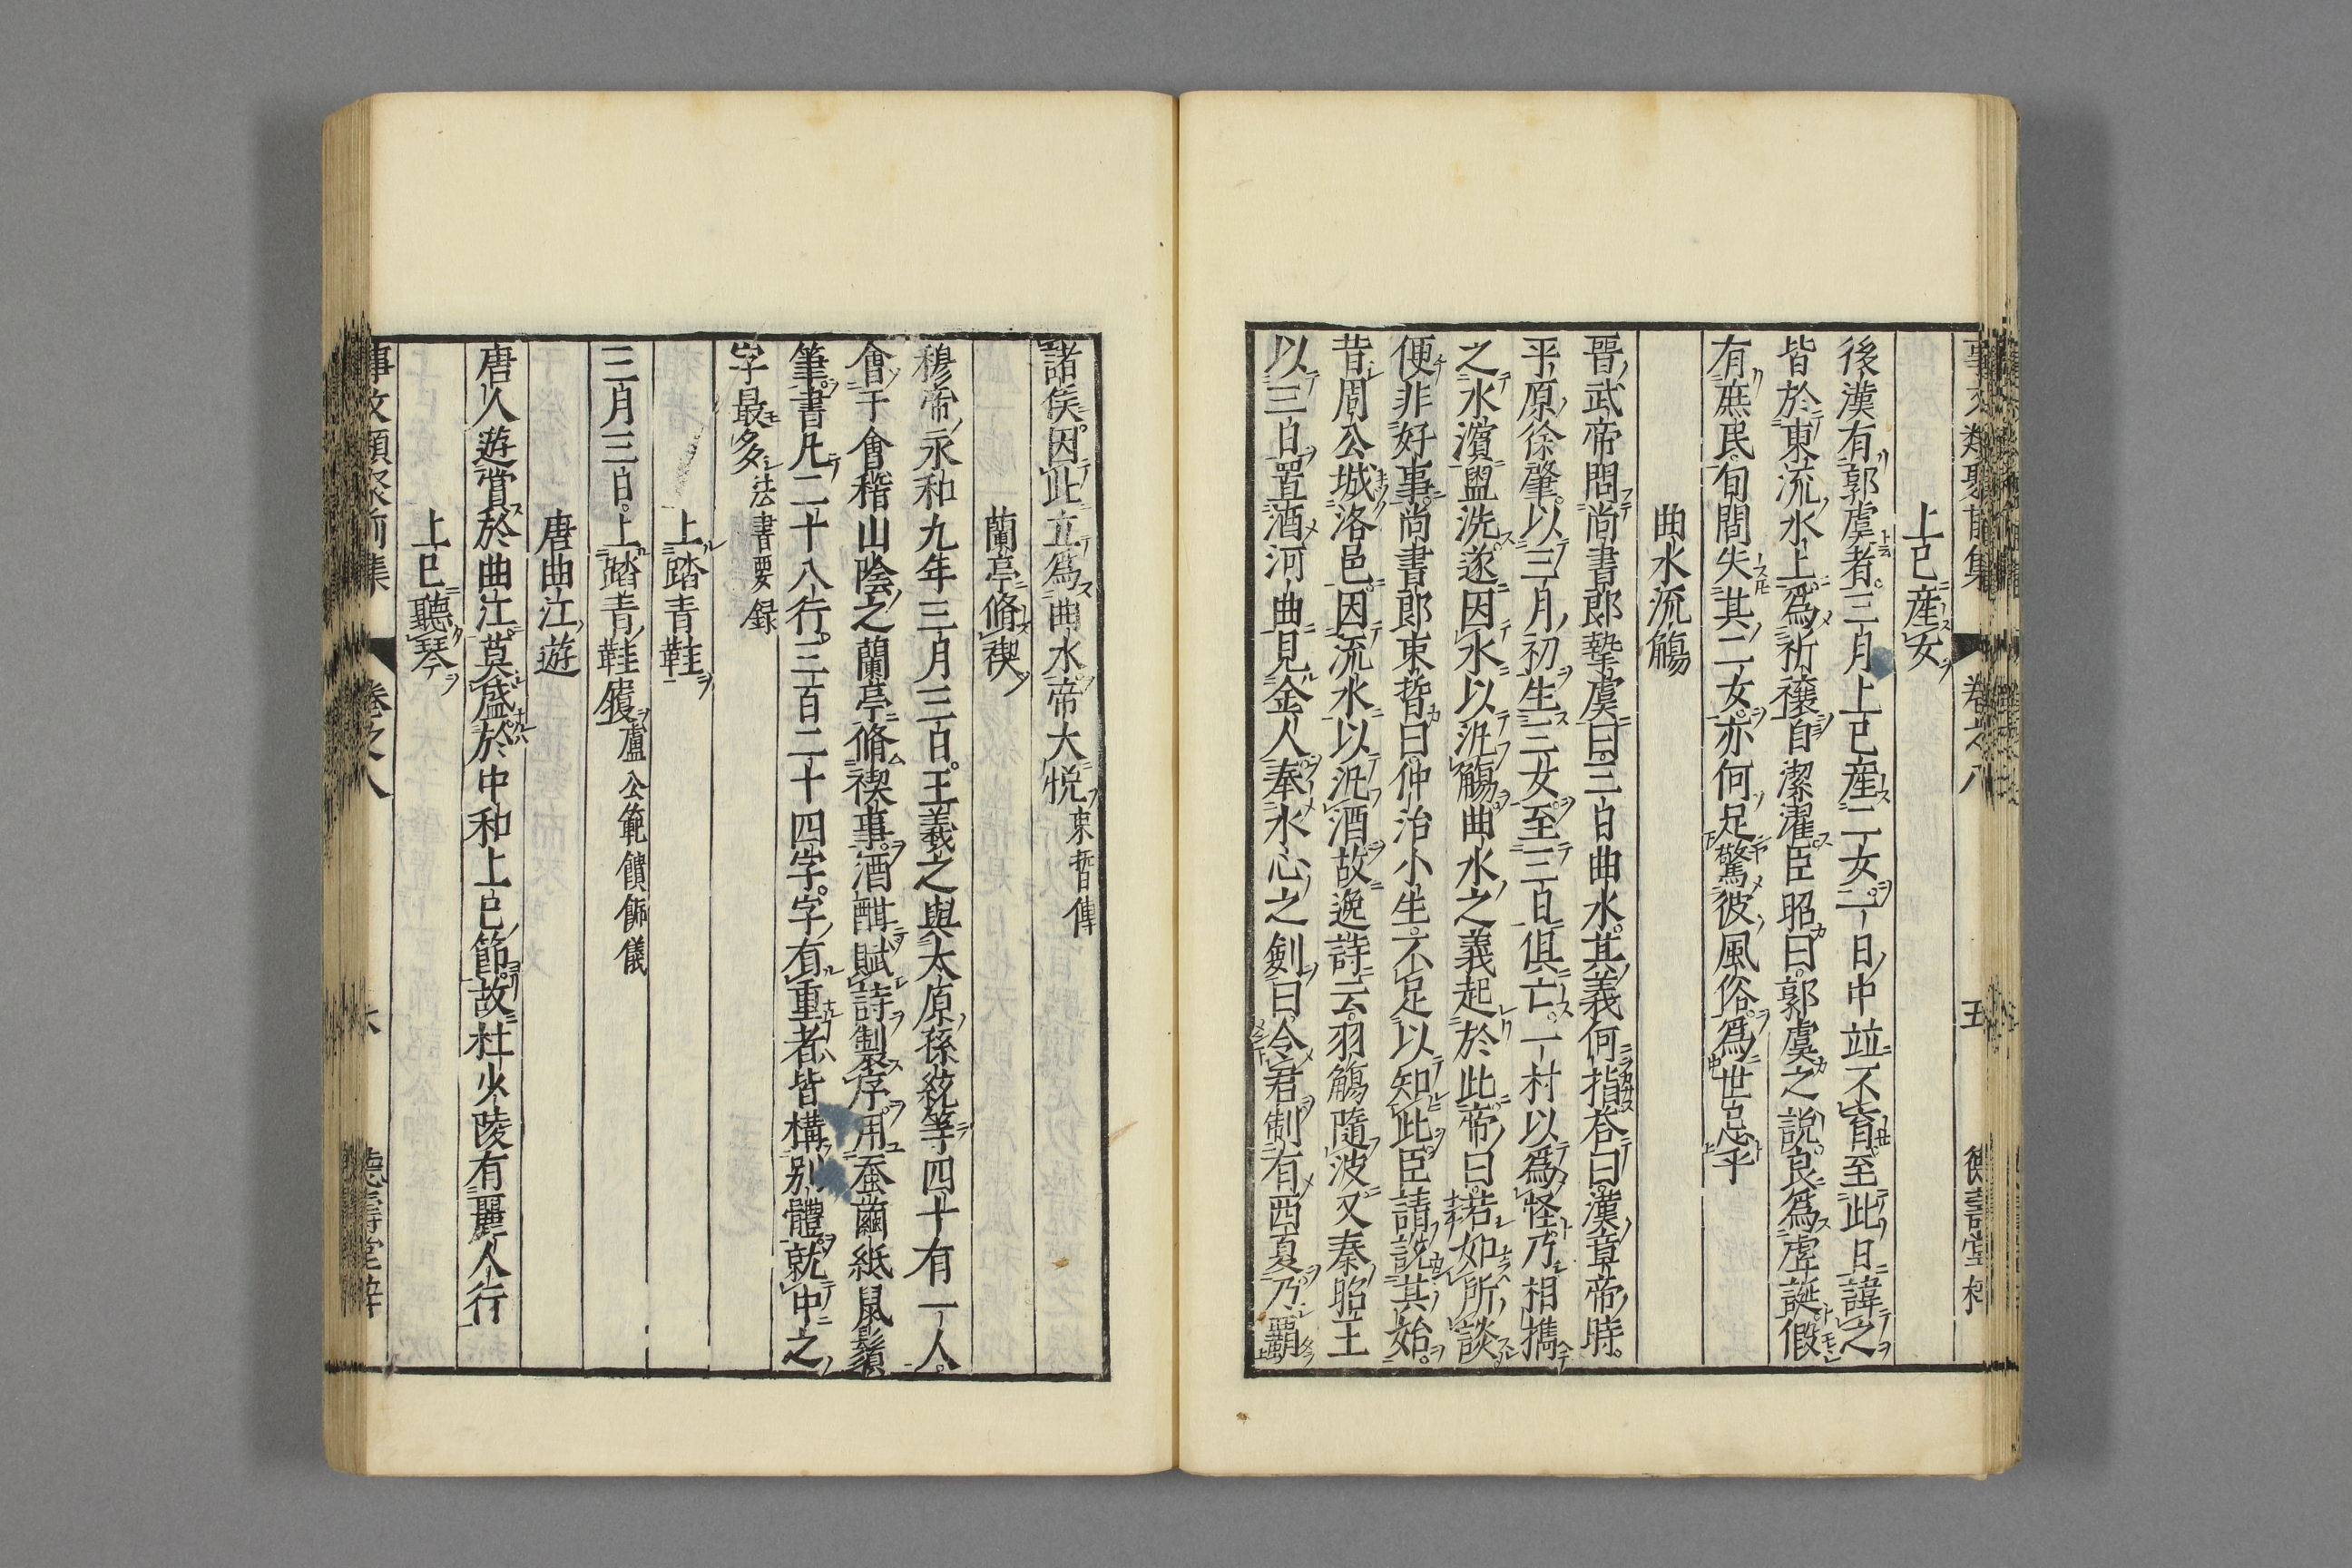 上巳産女
後漢有郭虞者三月上巳産二女二日中並不育至此日諱之
皆於東流水上爲祈禳自潔濯臣昭曰郭虞之説良爲虚誕假
有庶民旬間失其二女亦何足驚彼風俗爲世忌乎
曲水流觴
晋武帝問尚書郎摯虞曰三日曲水其義何指答曰漢章帝時
平原徐肇以三月初生三女至三日倶亡一村以爲怪乃相擕
之水濵盥洗遂因水以汎觴曲水之義起於此帝曰若如所談
便非好事尚書郎束晳曰仲治小生不足以知此臣請説其始
昔周公城洛邑因流水以汎酒故逸詩云羽觴隨波又秦昭王
以三日置酒河曲見金人奉水心之劍曰令君制有西夏乃覇
諸侯因此立爲曲水帝大悦束晳傳
蘭亭脩禊
穆帝永和九年三月三日王羲之與太原孫綂等四十有一人
會于會稽山陰之蘭亭脩禊事酒酣賦詩製序用蚕繭紙鼠鬚
筆書凡二十八行三百二十四字字有重者皆構别體就中之
字最多法書要録
上踏青鞋
三月三日上踏青鞋履盧公範饋餙儀
唐曲江遊
唐人遊賞於曲江莫盛於中和上巳節故杜少陵有麗人行
上巳聽琴
事文類聚前集 卷之八